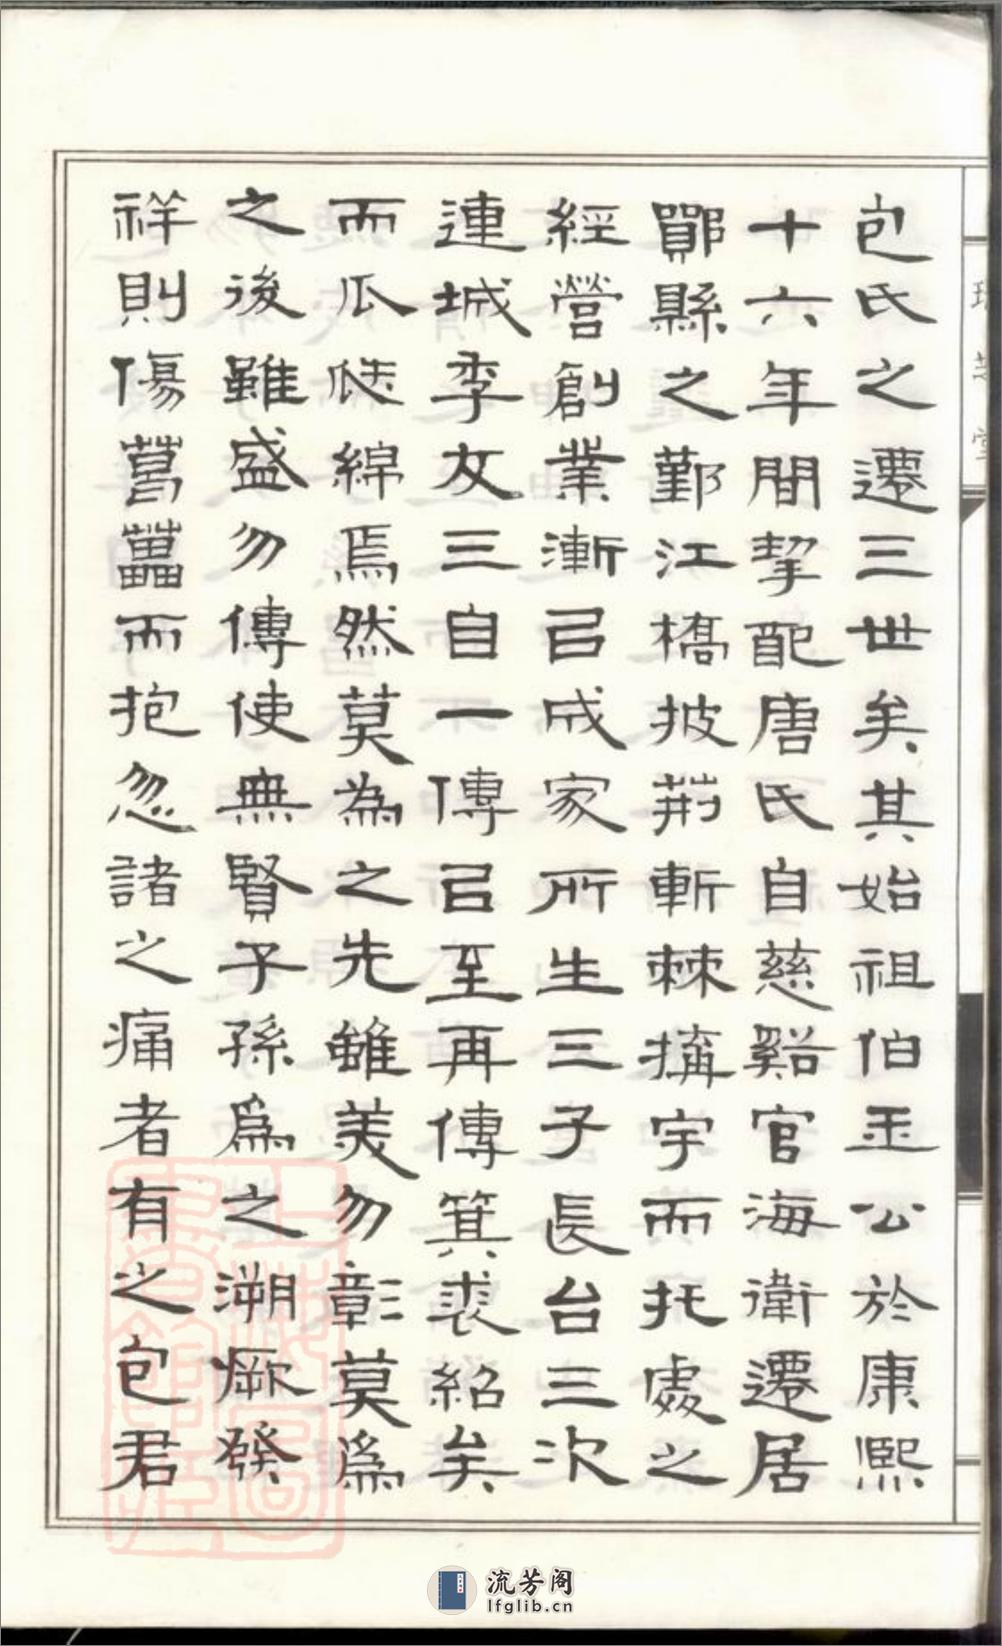 包氏之遷三世矣其始祖伯玉公於康熙
十六年間挈配唐氏自慈谿官海衛遷居
鄮縣之鄞江橋披荊斬棘搆宇而托處之
經營創業漸㠯成家所生三子長台三次
連城季友三自一傳㠯至再傳箕裘紹矣
而瓜瓞綿焉然莫為之先雖美勿彰莫爲
之後雖盛勿傳使無賢子孫爲之溯厥發
祥則傷葛藟而抱忽諸之痛者有之包君
流芳阁
lfglib.cn